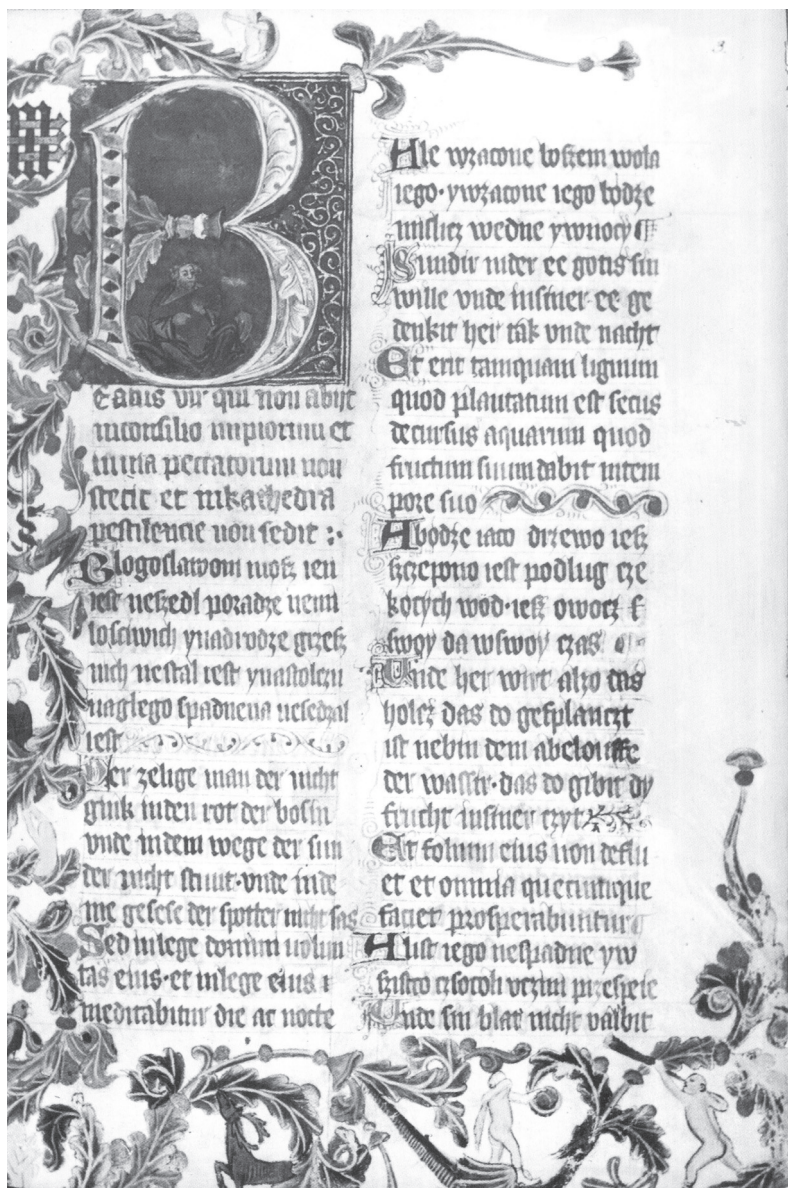 3
B
eatus vir qui non abyt
inconsilio impiorum et
inuia peccatorum non
stetit et inkathedra
pestilencie non sedit :·
Blogoslawoni mosz ien
iest neszedl poradze nemi
losciwich ynadrodze grzesz
nich nestal iest ynastolczu
naglego spadnena nesedzal
iest
Der zelige man der nicht
gink inden rot der bosin
vnde indem wege der sun
der nicht stunt·vnde inde
me gesese der spotter nicht sas
Sed inlege domini uolun
tas eius·et inlege eius i
meditabitur die ac nocte
Ale wzacone boszem wola
iego·ywzacone iego bodze
mislicz wedne ywnocy
Sundir inder ee gotis sin
wille vnde insiner ee ge
denkit her tak vnde nacht
Et erit tamquam lignum
quod plantatum est secus
decursus aquarum quod
fructum suum dabit intem
pore suo
Abodze iaco drzewo iesz
szczepono iest podlug cze
kocych wod·iesz owocz
swoy da wswoy czas
Unde her wirt alzo das
holcz das do geplanczt
ist nebin dem abelouffe
der wassir·das do gibit dy
frucht insiner czyt
Et folium eius non deflu
et et omnia quecumque
faciet prosperabuntur
Alist iego nespadne yw
szistco czsocoli vczini przespeie
Unde sin blat nicht valbit